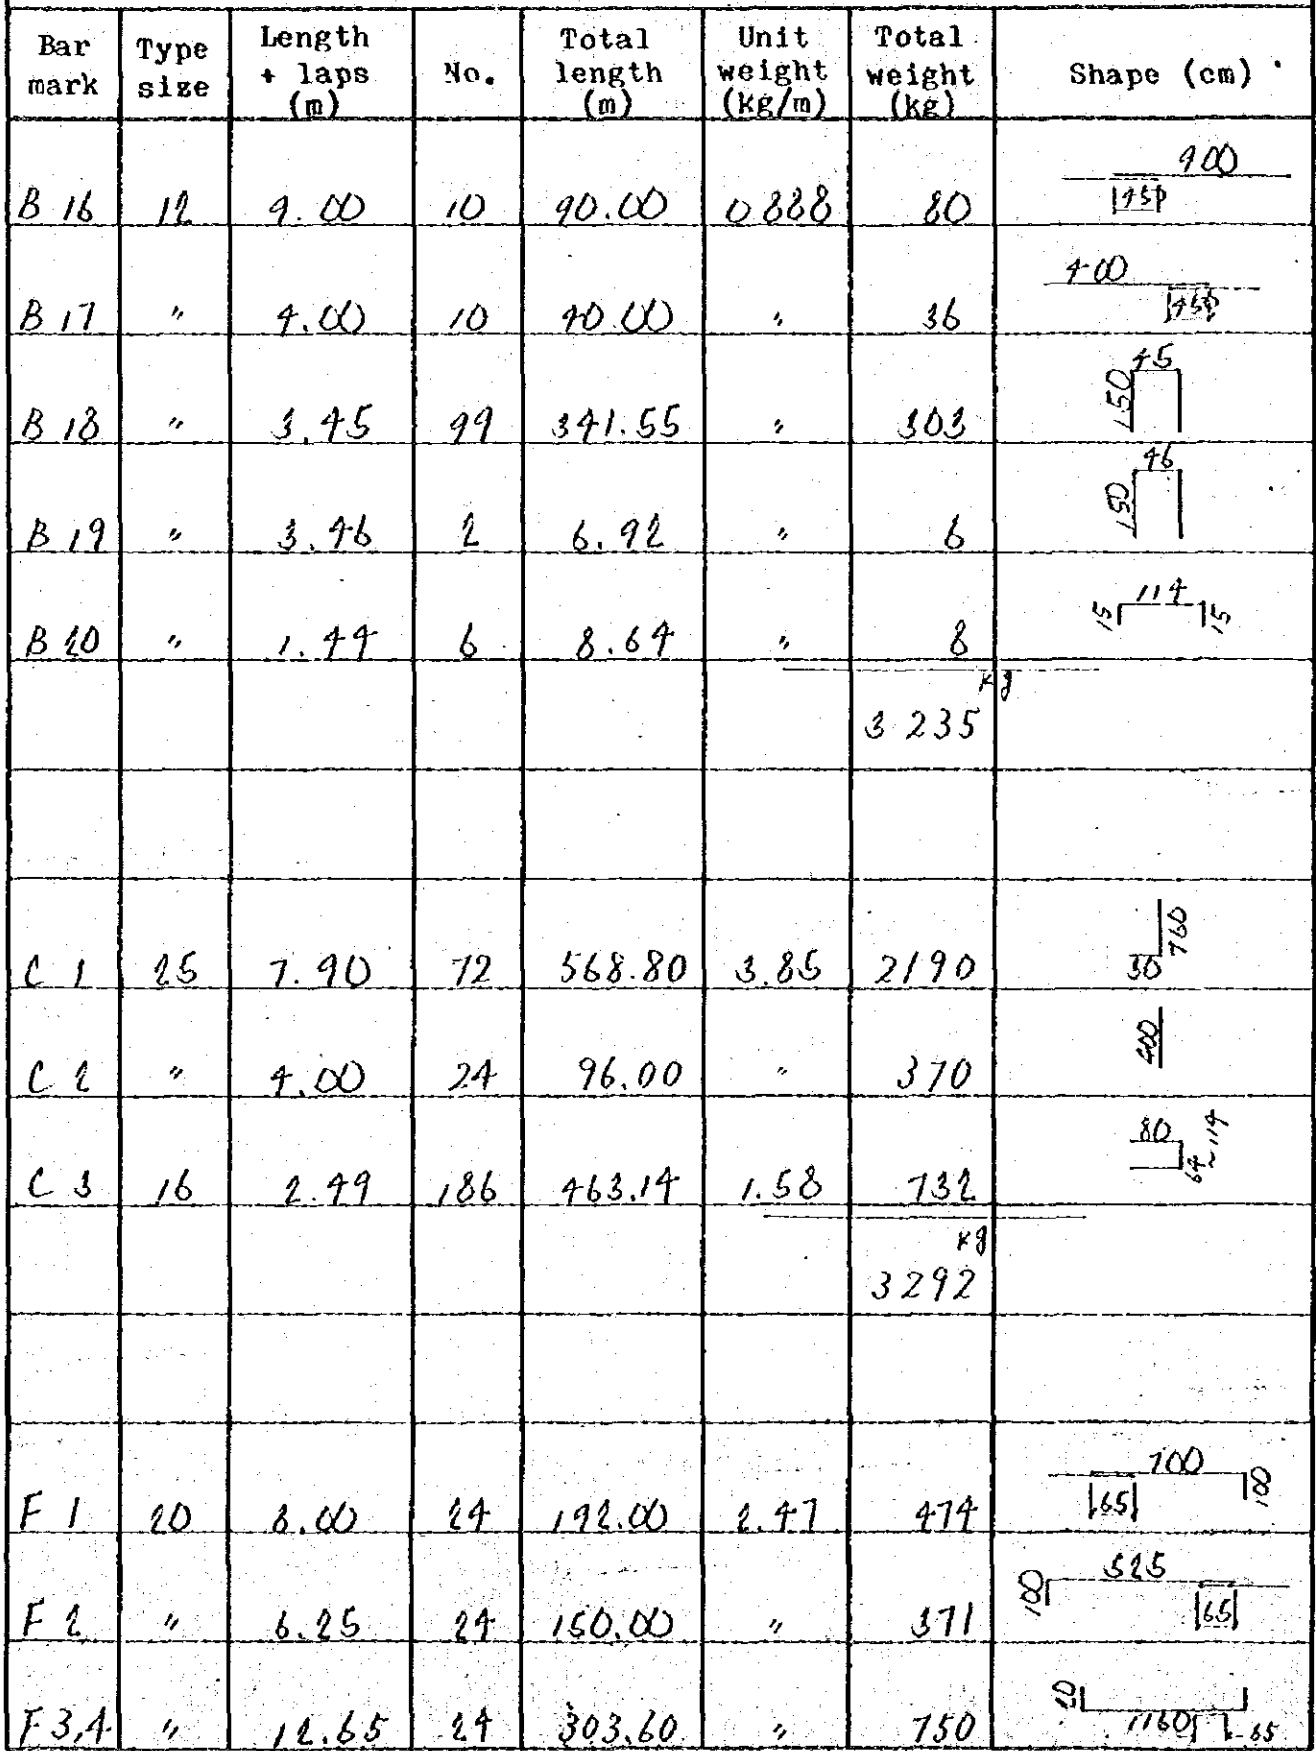 Bar mark | Type size | Length + laps (m) | No. | Total length (m) | Unit weight (kg/m) | Total weight (kg) | Shape (cm)
B 16 | 12 | 9.00 | 10 | 90.00 | 0.888 | 80 | 900 45
B 17 | " | 4.00 | 10 | 40.00 | " | 36 | 400 45
B 18 | " | 3.45 | 99 | 341.55 | " | 303 | 150 45
B 19 | " | 3.46 | 2 | 6.92 | " | 6 | 150 46
B 20 | " | 1.44 | 6 | 8.64 | " | 8 | 15 114 15
kg
3 235
C 1 | 25 | 7.90 | 72 | 568.80 | 3.85 | 2190 | 30 760
C 2 | " | 4.00 | 24 | 96.00 | " | 370 | 400
C 3 | 16 | 2.49 | 186 | 463.14 | 1.58 | 732 | 80 64~114
kg
3292
F 1 | 20 | 8.00 | 24 | 192.00 | 2.47 | 474 | 700 65 100
F 2 | " | 6.25 | 24 | 150.00 | " | 371 | 100 525 65
F 3,4 | " | 12.65 | 24 | 303.60 | " | 750 | 1160 65